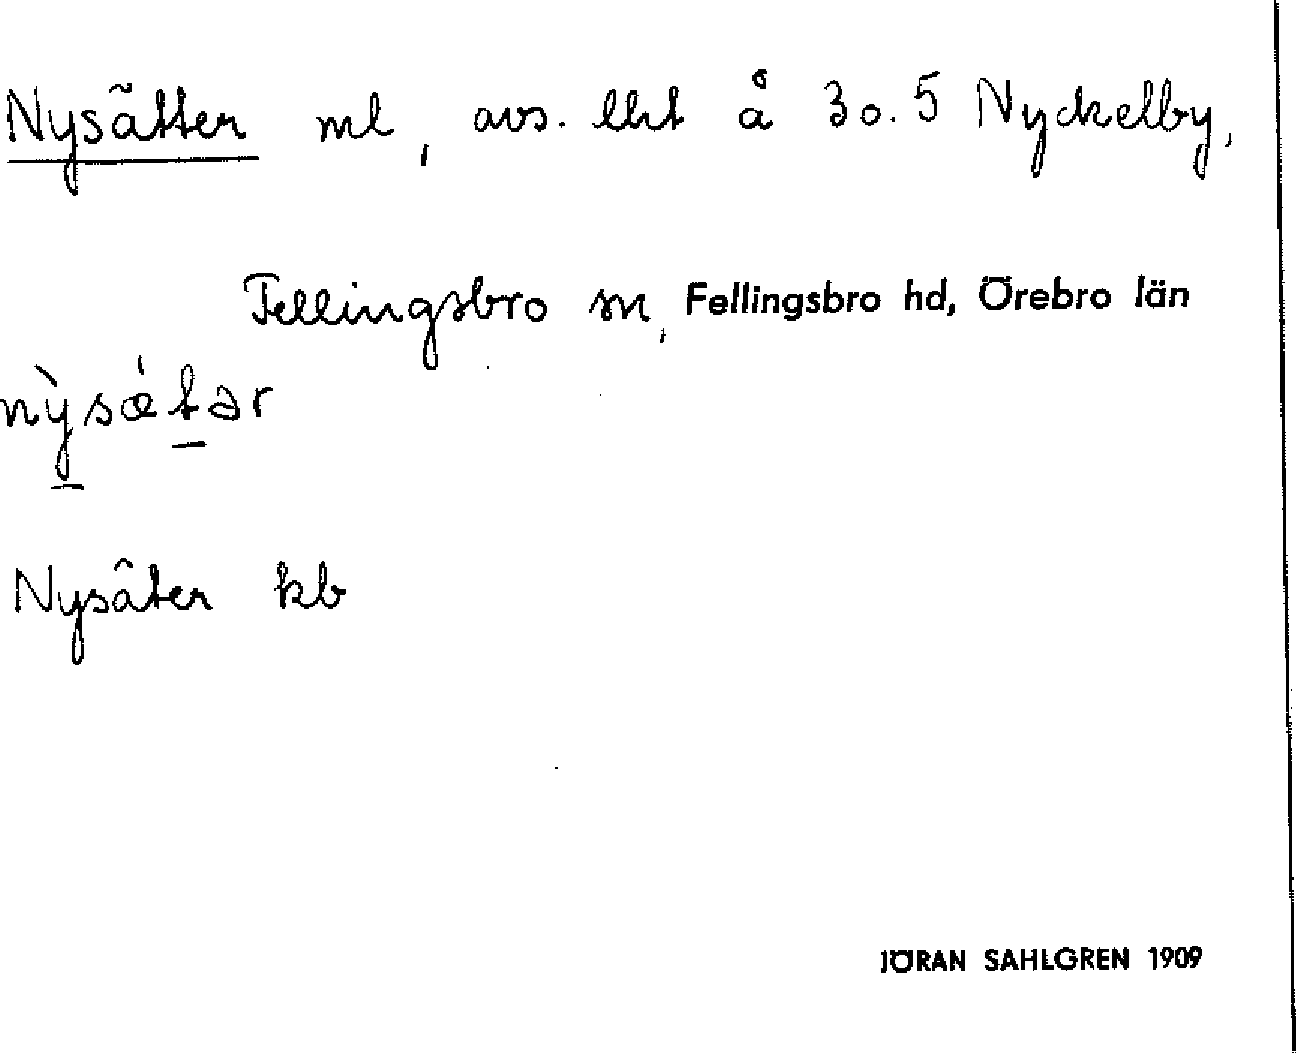 Nysätter ml, avs. lht å 3 o. 5 Nyckelby,
Fellingsbro sn, Fellingsbro hd, Örebro län
nỳsǽtər
Nysäter kb
JÖRAN SAHLGREN 1909